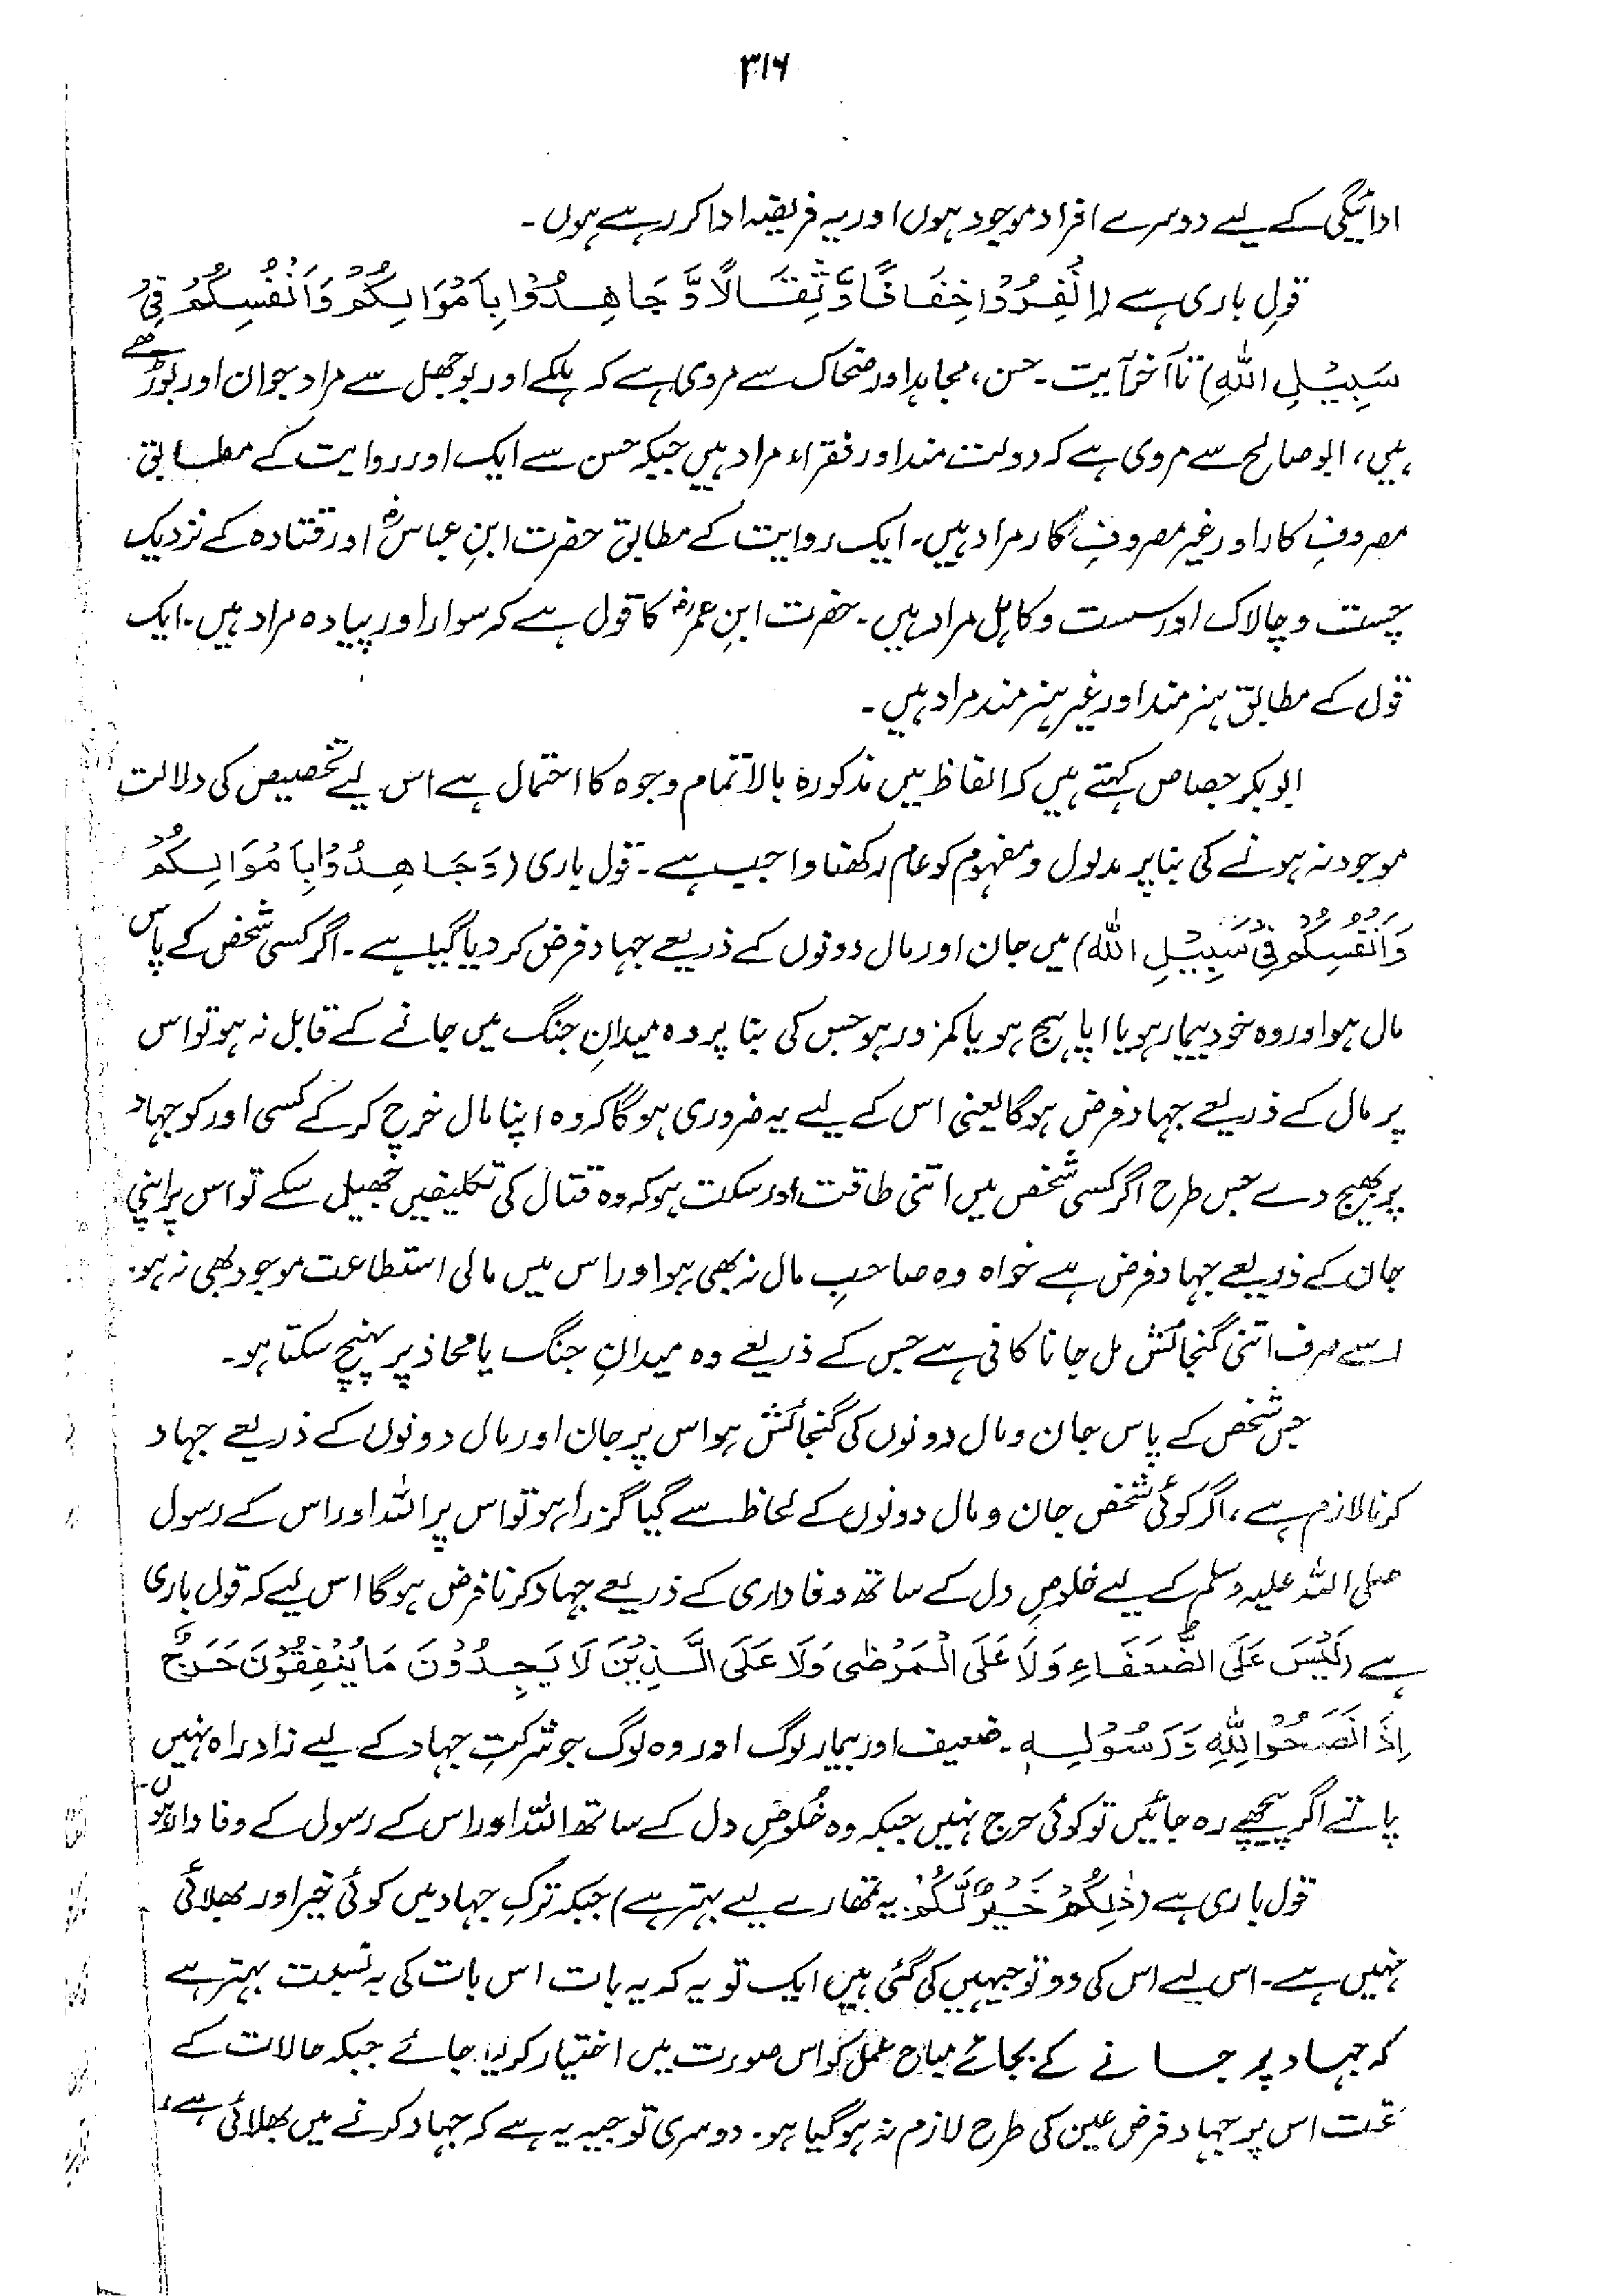 ۳۱۶
ادائیگی کے لیے دوسرے افراد موجود ہوں اور یہ فریضہ ادا کر رہے ہوں۔
قولِ باری ہے (اِنْفِرُوْا خِفَافًا وَّثِقَالًا وَّ جَاهِدُوْا بِاَمْوَالِكُمْ وَاَنْفُسِكُمْ فِیْ
سَبِیْلِ اللّٰهِ) تا آخر آیت۔ حسن، مجاہد اور ضحاک سے مروی ہے کہ ہلکے اور بوجھل سے مراد جوان اور بوڑھے
ہیں، ابو صالح سے مروی ہے کہ دولت مند اور فقراء مراد ہیں جبکہ حسن سے ایک اور روایت کے مطابق
مصروفِ کار اور غیر مصروفِ کار مراد ہیں۔ ایک روایت کے مطابق حضرت ابنِ عباسؓ اور قتادہ کے نزدیک
چست و چالاک اور سست و کاہل مراد ہیں۔ حضرت ابنِ عمرؓ کا قول ہے کہ سوار اور پیادہ مراد ہیں۔ ایک
قول کے مطابق ہنرمند اور غیر ہنرمند مراد ہیں۔
ابوبکر جصاص کہتے ہیں کہ الفاظ میں مذکورہ بالا تمام وجوہ کا احتمال ہے اس لیے تخصیص کی دلالت
موجود نہ ہونے کی بنا پر مدلول و مفہوم کو عام رکھنا واجب ہے۔ قول باری (وَجَاهِدُوْا بِاَمْوَالِكُمْ
وَاَنْفُسِكُمْ فِیْ سَبِیْلِ اللّٰه) میں جان اور مال دونوں کے ذریعے جہاد فرض کر دیا گیا ہے۔ اگر کسی شخص کے پاس
مال ہو اور وہ خود بیمار ہو یا اپاہج ہو یا کمزور ہو جس کی بنا پر وہ میدانِ جنگ میں جانے کے قابل نہ ہو تو اس
پر مال کے ذریعے جہاد فرض ہوگا یعنی اس کے لیے یہ ضروری ہوگا کہ وہ اپنا مال خرچ کر کے کسی اور کو جہاد
پر بھیج دے جس طرح اگر کسی شخص میں اتنی طاقت اور سکت ہو کہ وہ قتال کی تکلیفیں جھیل سکے تو اس پر اپنی
جان کے ذریعے جہاد فرض ہے خواہ وہ صاحبِ مال نہ بھی ہو اور اس میں مالی استطاعت موجود بھی نہ ہو۔
اسے صرف اتنی گنجائش مل جانا کافی ہے جس کے ذریعے وہ میدانِ جنگ یا محاذ پر پہنچ سکتا ہو۔
جس شخص کے پاس جان و مال دونوں کی گنجائش ہو اس پر جان اور مال دونوں کے ذریعے جہاد
کرنا لازم ہے، اگر کوئی شخص جان و مال دونوں کے لحاظ سے گیا گزرا ہو تو اس پر اللہ اور اس کے رسول
صلی اللہ علیہ وسلم کے لیے خلوصِ دل کے ساتھ وفاداری کے ذریعے جہاد کرنا فرض ہوگا اس لیے کہ قول باری
ہے (لَیْسَ عَلَی الضُّعَفَاءِ وَلَا عَلَی الْمَرْضٰی وَلَا عَلَی الَّذِیْنَ لَا یَجِدُوْنَ مَا یُنْفِقُوْنَ حَرَجٌ
اِذَا نَصَحُوْا لِلّٰهِ وَرَسُوْلِهٖ۔ ضعیف اور بیمار لوگ اور وہ لوگ جو شرکتِ جہاد کے لیے زادِ راہ نہیں
پاتے اگر پیچھے رہ جائیں تو کوئی حرج نہیں جبکہ وہ خلوصِ دل کے ساتھ اللہ اور اس کے رسول کے وفادار ہوں۔
قول باری ہے (ذٰلِكُمْ خَیْرٌ لَّكُمْ، یہ تمہارے لیے بہتر ہے) جبکہ ترکِ جہاد میں کوئی خیر اور بھلائی
نہیں ہے۔ اس لیے اس کی دو توجیہیں کی گئی ہیں ایک تو یہ کہ یہ بات اس بات کی بہ نسبت بہتر ہے
کہ جہاد پر جانے کے بجائے مباح عمل کو اس صورت میں اختیار کر لیا جائے جبکہ حالات کے
تحت اس پر جہاد فرض عین کی طرح لازم نہ ہو گیا ہو۔ دوسری توجیہ یہ ہے کہ جہاد کرنے میں بھلائی ہے،